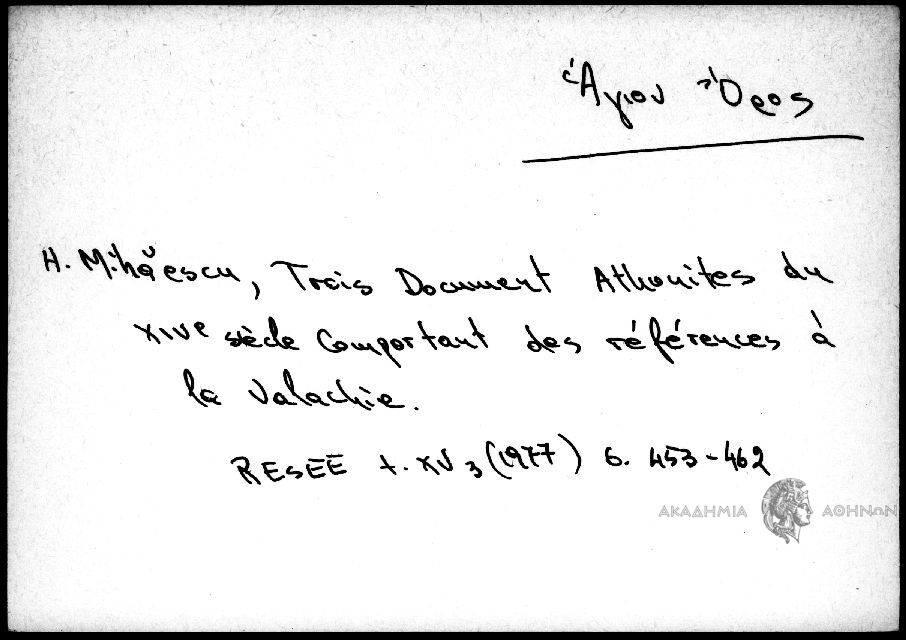 Ἁγιου Ὄρος
H. Mihăescu, Trois Document Athonites du
XIVe siècle Comportant des références à
la Valachie.
RESEE t. XV 3 (1977) σ. 453-462
ΑΚΑΔΗΜΙΑ ΑΘΗΝΩΝ